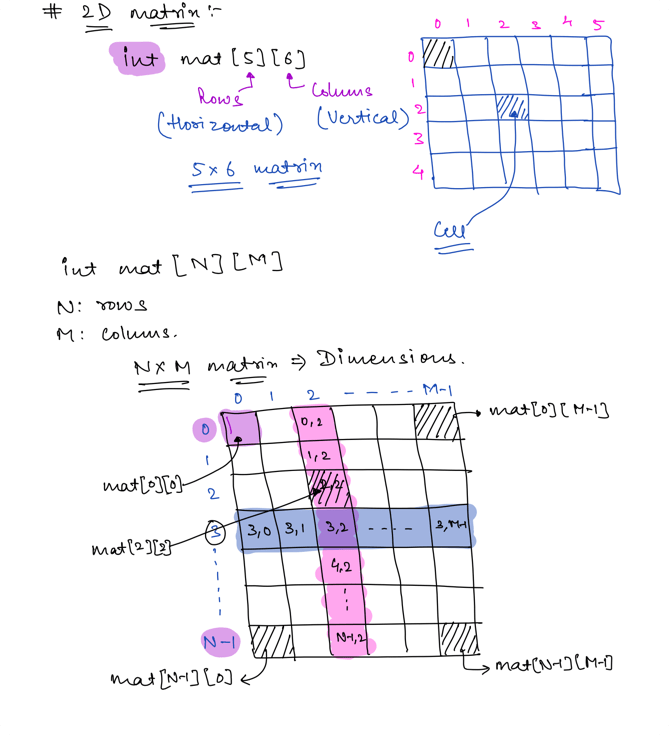 # 2D matrix :-
0 1 2 3 4 5
int mat [5][6]
0
1
2
3
4
Rows Colums
(Horizontal) (Vertical)
5 x 6 matrix
Cell
int mat [N][M]
N: rows
M: colums.
N x M matrix ⇒ Dimensions.
0 1 2 - - - - M-1
0 0,2 mat[0][M-1]
1 1,2
mat[0][0]
2 2,2
3 3,0 3,1 3,2 - - - - 3,M-1
mat[2][2]
4,2
N-1 N-1,2
mat[N-1][0] mat[N-1][M-1]